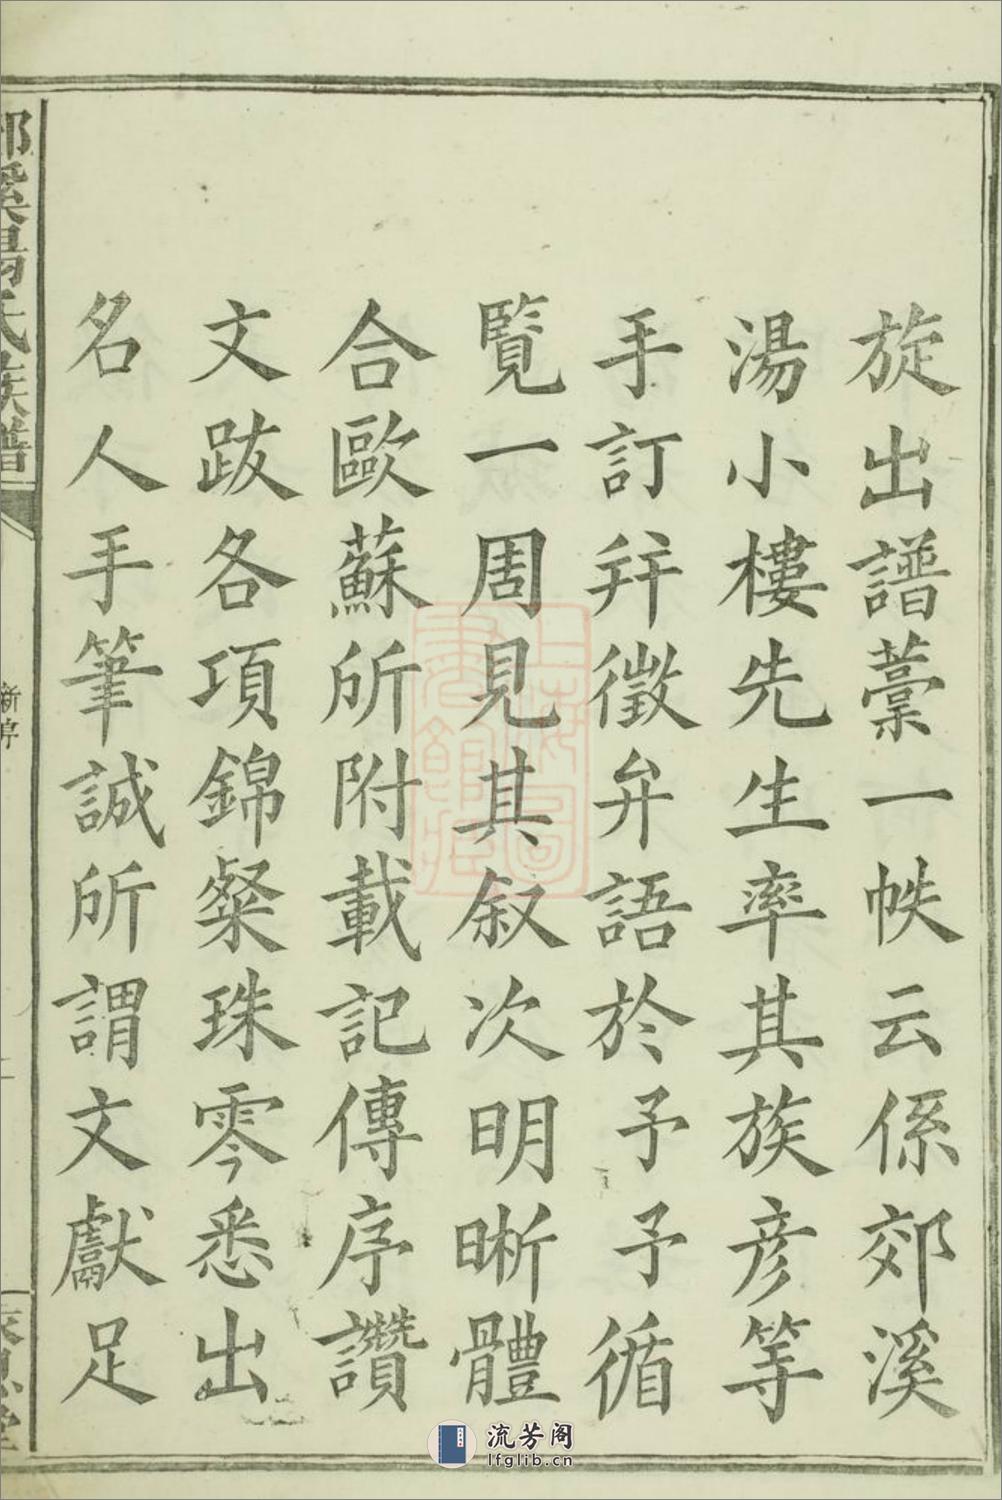 旋出譜藁一帙云係郊溪
湯小樓先生率其族彥等
手訂幷徵弁語於予予循
覽一周見其叙次明晰體
合歐蘇所附載記傳序讚
文跋各項錦粲珠零悉出
名人手筆誠所謂文獻足
郊溪湯氏族譜
新序
流芳阁
lfglib.cn